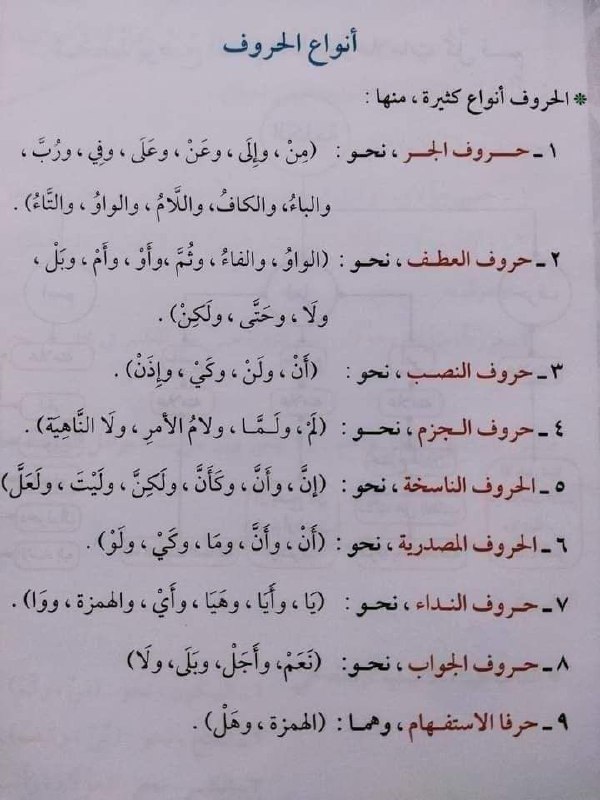 أنواع الحروف
* الحروف أنواع كثيرة ، منها :
١ ـ حـــروف الجـــر ، نحـــو : (مِنْ ، وإِلَى ، وعَنْ ، وعَلَى ، وفِي ، ورُبَّ ،
والباءُ، والكافُ، واللَّامُ، والواوُ ، والتَّاءُ) .
٢ ـ حروف العطـف ، نحـو : (الواوُ ، والفاءُ ، وثُمَّ ،وأَوْ ، وأَمْ ، وبَلْ ،
ولَا ، وحَتَّى ، ولَكِنْ) .
٣ ـ حروف النصـب ، نحو : (أَنْ ، ولَنْ ، وكَيْ ، وإِذَنْ) .
٤ ـ حروف الـجزم ، نحـــو : (لَمْ، ولَـمَّـا ، ولامُ الأمرِ ، ولَا النَّاهِيَة) .
٥ ـ الحروف الناسخة ، نحو : (إنَّ ، وأَنَّ ، وكَأَنَّ ، ولَكِنَّ ، ولَيْتَ ، ولَعَلَّ)
٦ ـ الحروف المصدرية ، نحو : (أَنْ ، وأَنَّ ، ومَا ، وكَيْ ، ولَوْ) .
٧ ـ حـروف النـداء ، نحـو : (يَا ، وأَيَا ، وهَيَا ، وأَيْ ، والهمزة ، ووَا) .
٨ ـ حـروف الجواب ، نحـو: (نَعَمْ، وأَجَلْ، وبَلَى، ولَا)
٩ ـ حرفا الاستفـهام ، وهمـا : (الهمزة ، وهَلْ) .